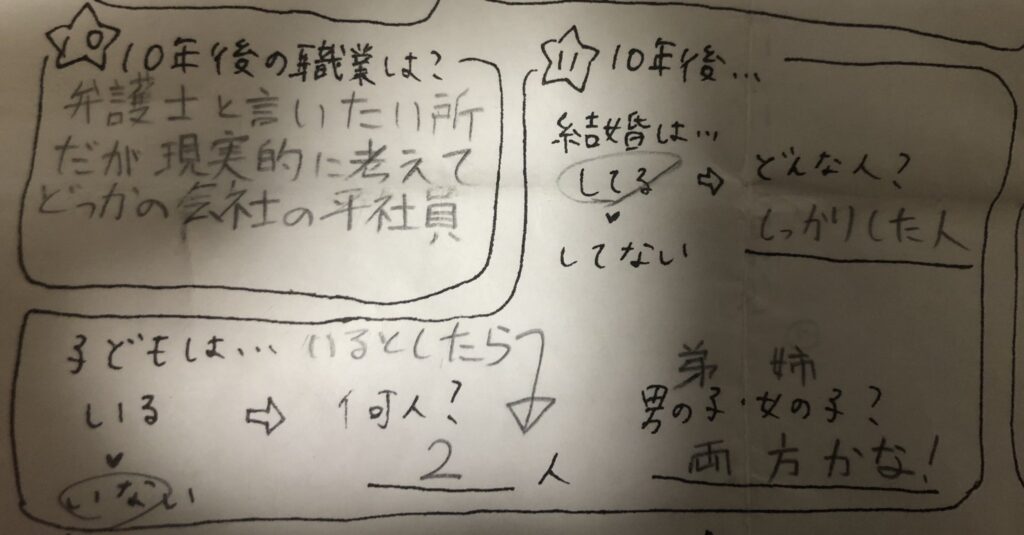 10 10年後の職業は?
弁護士と言いたい所
だが現実的に考えて
どっかの会社の平社員
11 10年後...
結婚は...
してる ⇨ どんな人?
しっかりした人
してない
子どもは... いるとしたら
いる ⇨ 何人?
2人
いない
弟 姉
男の子・女の子?
両方かな!